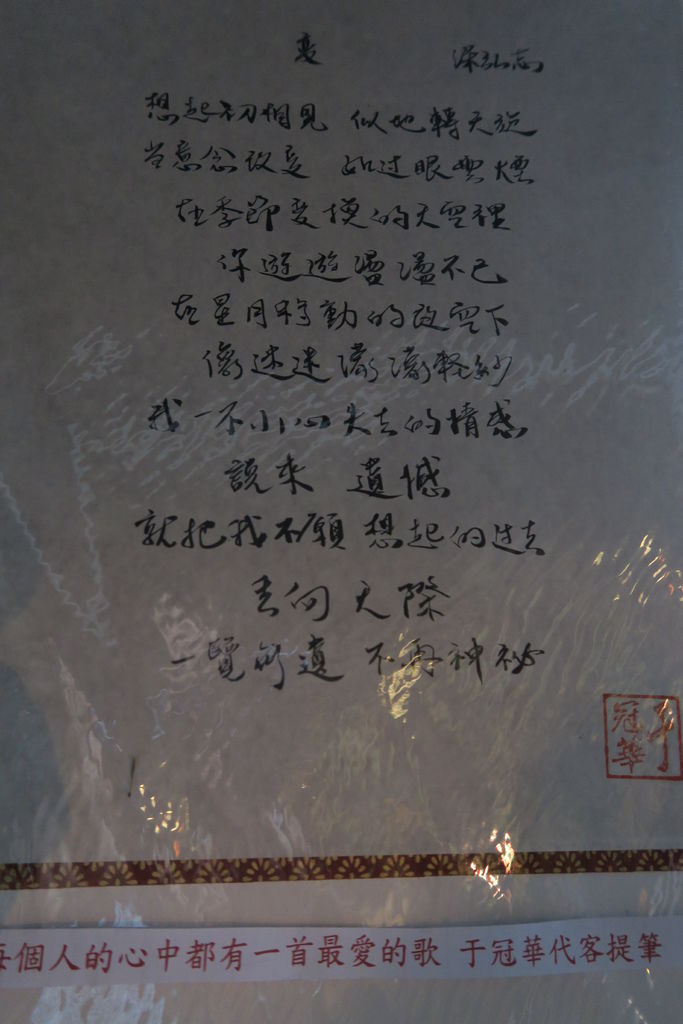 变 梁弘志
想起初相見 似地轉天旋
当意念改变 如过眼雲煙
在季節变換的天空裡
你遊遊盪盪不已
在星月移動的夜空下
像迷迷濛濛輕紗
我一不小心失去的情感
說來 遺憾
就把我不願想起的过去
去向天際
一覽無遺 不再神祕
于冠華
每個人的心中都有一首最愛的歌 于冠華代客提筆